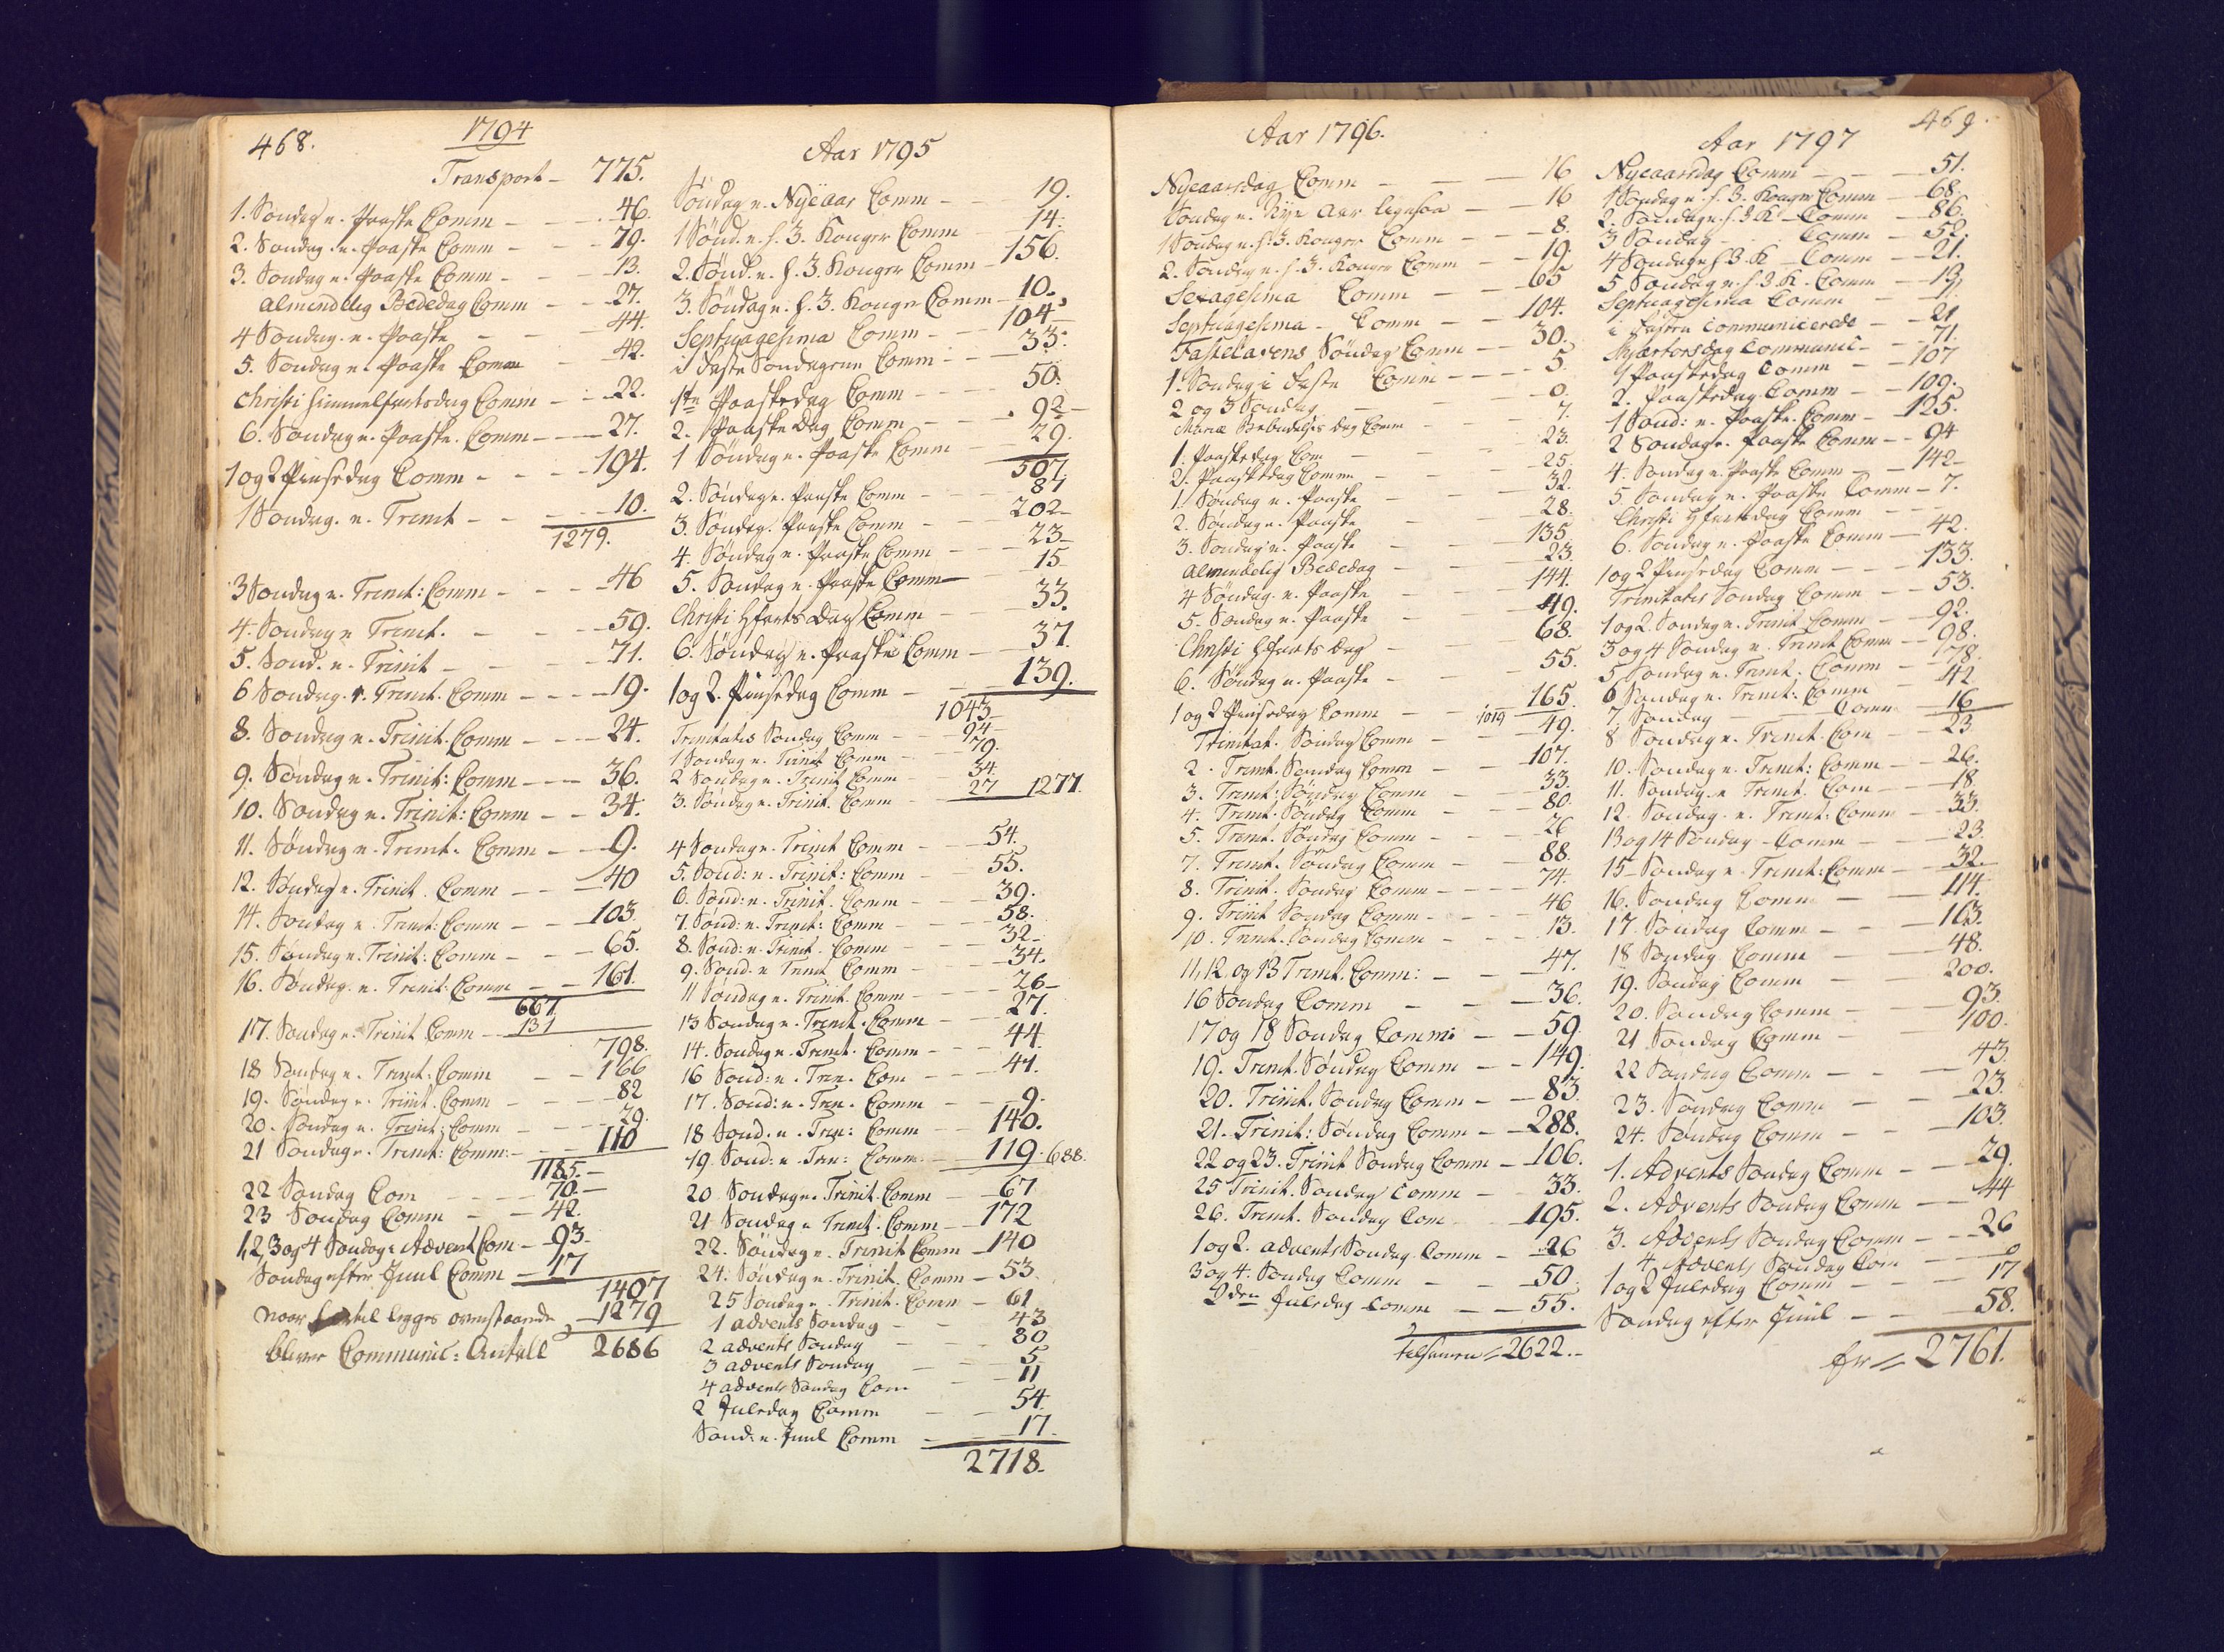 468.
1794
Transport - 775.
1. Søndag e. Paaske Comm - - - 46.
2. Søndag e. Paaske Comm - - - 79.
3. Søndag e. Paaske Comm - - - 13.
almindelig Bededag Comm - - 27.
4 Søndag e. Paaske - - - 44.
5. Søndag e. Paaske Comm - 42.
Christi Himmelfartsdag Comm - - 22.
6. Søndag e. Paaske. Comm - - - 27.
1 og 2 Pinsedag Comm - - - 194.
1 Søndag. e. Trinit - - - - 10.
1279.
3 Søndag e. Trinit: Comm - - - 46
4. Søndag e Trinit. - - - 59.
5. Sønd. e. Trinit - - - 71.
6 Søndag. e. Trinit. Comm - - - 19.
8. Søndag e. Trinit. Comm - - - 24.
9. Søndag e. Trinit: Comm - - - 36.
10. Søndag e. Trinit: Comm - - 34.
11. Søndag e. Trinit. Comm - - 9.
12. Søndag e. Trinit. Comm - - - 40
14. Søndag e. Trinit: Comm - - 103.
15. Søndag e. Trinit: Comm - - - 65.
16. Søndag. e. Trinit: Comm - - 161.
667
17. Søndag e. Trinit Comm - 131
798.
18 Søndag e. Trinit. Comm - - 166
19. Søndag e. Trinit. Comm - - - 82
20. Søndag e. Trinit: Comm - - - 29.
21 Søndag e. Trinit: Comm: - - - 110
1185. -
22 Søndag Com - - - 70. -
23 Søndag Comm - - 42.
1, 2, 3 og 4 Søndag i Advent Com - 93.
Søndag efter Juul Comm - 17
1407
naar hertil legges ovenstaaende - 1279
bliver Communic: Antall 2686
Aar 1795
Søndag e. Nyeaar Comm - - 19.
1 Sønd. e. h. 3. Konger Comm - 14.
2. Sønd. e. h. 3. Konger Comm - 156.
3. Søndag e. h. 3. Konger Comm - 10.
Septuagesima Comm - - 104
i Faste Søndagene Comm - - 33.
1te Paaskedag Comm - - - 50.
2. Paaske Dag Comm - - 92 -
1 Søndag e. Paaske Comm - 29.
507.
2. Søndag e. Paaske Comm - - 87
3. Søndag. Paaske Comm - - 202 -
4. Søndag e. Paaske Comm - - 23 -
5. Søndag e. Paaske Comm - 15
Christi Hfarts Dag Comm - 33.
6. Søndag e. Paaske Comm - - 37.
1 og 2. Pinsedag Comm - - 139.
1043
Trinitatis Søndag Comm - - 94 -
1 Søndag e. Trinit Comm - 79.
2 Søndag e. Trinit Comm - 34.
3. Søndag e. Trinit. Comm - - 27 1277.
4 Søndag e. Trinit Comm - - 54.
5. Sønd: e. Trinit: Comm - - 55.
6. Sønd: e. Trinit. Comm - - 39.
7. Sønd: e. Trinit: Comm - - - 58.
8. Sønd: e. Trinit. Comm - - - 32 -
9. Sønd. e Trinit Comm - - - 34.
11 Søndag e. Trinit. Comm - - - 26 -
13 Søndag e. Trinit. Comm - - 27.
14. Søndag e. Trinit. Comm - - - 44.
16 Sønd: e. Trin. Com - - - 41.
17. Sønd: e. Trin. Comm - - 9.
18 Sønd. e. Trin: Comm - - 140.
19. Sønd: e. Trin: Comm. - - 119. 688.
20 Søndag e. Trinit. Comm - - 67
21 Søndag e Trinit. Comm - - 172
22. Søndag e. Trinit Comm - 140
24. Søndag e. Trinit. Comm - 53.
25 Søndag e. Trinit. Comm - 61
1 advents Søndag - - 43
2 advents Søndag - - 80
3 advents Søndag - - 5
4 advents Søndag Com - - 11
2 Juledag Comm - - 54.
Sønd: e. Juul Comm - - 17.
2718.
Aar 1796.
Nyeaarsdag Comm - - - 16
Søndag e. Nye Aar ligesaa - - 16
1 Søndag e. h. 3. Konger Comm - - - 8.
2. Søndag e. h. 3. Konger Comm - - 19.
Sexagesima Comm - - 65
Septuagesima - Comm - - 104.
Fastelavens Søndag Comm - - 30.
1. Søndag i Faste Comm - - - - 5.
2 og 3 Søndag - - - 0.
Mariæ Bebudelses dag Comm - - 7.
1. Paaskedag Com - - - 23.
2. Paaskedag Comm - - - 25.
1. Søndag e. Paaske - - - 32.
2. Søndag e. Paaske - - 28.
3. Søndag e. Paaske - - 135
almindelig Bededag - - - 23
4 Søndag. e. Paaske - - - 144.
5. Søndag e. Paaske - - 49.
Christi Hfarts Dag - - 68.
6. Søndag e. Paaske - - - 55.
1 og 2 Pinsedag Comm - - 165.
1019
Trinitat. Søndag Comm - - - 49.
2. Trinit. Søndag Comm - - 107.
3. Trinit: Søndag Comm - - 33.
4. Trinit. Søndag Comm - - 80.
5. Trinit. Søndag Comm - - - 26
7. Trinit. Søndag Comm - - 88.
8. Trinit. Søndag Comm - - - - 74.
9. Trinit Søndag Comm - - - 46
10. Trinit. Søndag Comm - - - 13.
11, 12. og 13 Trinit. Comm: - - - 47.
16 Søndag Comm - - - 36.
17 og 18 Søndag Comm: - - 59.
19. Trinit. Søndag Comm - - 149.
20. Trinit. Søndag Comm - - 83.
21. Trinit: Søndag Comm - - 288.
22 og 23. Trinit Søndag Comm - 106.
25 Trinit. Søndag Comm - 33.
26. Trinit. Søndag Com - 195.
1 og 2. advents Søndag. Comm - 26
3 og 4. Søndag Comm - - - 50.
2den Juledag Comm - - 55.
tilsamen = 2622. -
469.
Aar 1797
Nyeaarsdag Comm - - - 51.
1 Søndag e. h. 3. Konger Comm - 68.
2. Søndag e. h. 3. K - Comm - 86.
3 Søndag - Comm - 52.
4 Søndag e h 3. K - Comm - - 21.
5 Søndag e. h. 3. K. Comm - 13.
Septuagesima Comm - - -
i Fasten Communicerede - - 21
Skjærtorsdag Communic - - 71.
1 Paaskedag Comm - - 107
2. Paaskedag Comm - - 109.
1 Sønd: e. Paaske. Comm - 125.
2 Søndag e. Paaske Comm - - 94
4. Søndag e. Paaske Comm - - 142 -
5 Søndag e. Paaske Comm - 7.
Christi Hfarts dag Comm - -
6. Søndag e. Paaske Comm - 42.
1 og 2 Pinsedag Comm - - - 133.
Trinitatis Søndag Comm - - 53.
1 og 2. Søndag e. Trinit Comm - - 92.
3 og 4 Søndag e. Trinit Comm - 98.
5 Søndag e. Trinit. Comm - - 178.
6 Søndag e. Trinit: Comm - 42
7. Søndag - Comm - 16
8 Søndag e. Trinit. Com - - 23
10. Søndag e. Trinit: Comm - - 26.
11. Søndag. e Trinit. Com - - - 18.
12. Søndag. e. Trinit. Comm - 33.
13 og 14 Søndag - Comm - - 23.
15 Søndag e. Trinit: Comm - - 32.
16. Søndag Comm - - 114.
17. Søndag Comm - - - 103.
18 Søndag Comm - - 48.
19. Søndag Comm - - 200.
20. Søndag Comm - - 93.
21 Søndag Comm - 100.
22 Søndag Comm - - - 43.
23. Søndag Comm - - 23.
24. Søndag Comm - - 103.
1. Advents Søndag Comm - - 29.
2. Advents Søndag Comm - - 44
3. Advents Søndag Comm - - 26
4. Advents Søndag Com - 0
1 og 2 Juledag Comm - - - 17
Søndag efter Juul - - 58.
er = 2761.